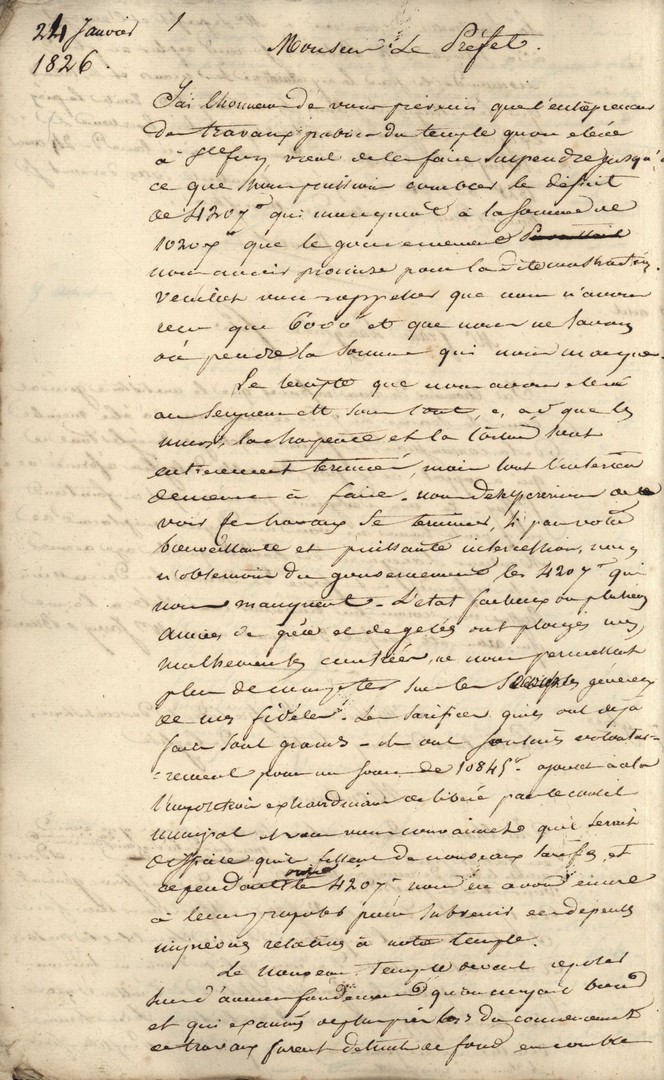 24 Janvier 1
1826.
Monsieur Le Préfet.
J'ai l'honneur de vous prévenir que l'entrepreneur
de travaux publics du temple qu'on élève
à vient de les faire suspendre jusqu'à
ce que nous puissions combler le déficit
de 4207 qui manquent à la somme de
10207 que le gouvernement
nous avoir promise pour la dite construction.
veuillez vous rappeller que nous n'avons
reçu que 6000 et que nous ne savons
où prendre la somme qui nous manque.
Le temple que nous avons élevé
au Seigneur est sous tout, c, a, d que les
murs, la charpente et la toiture sont
entièrement terminés, mais tout l'intérieur
demeure à faire. nous désespérerions de
voir ces travaux se terminer, si par votre
bienveillante et puissante intercession, nous
n'obtenons du gouvernement les 4207 qui
nous manquent. L'état facheux où plusieurs
années de grêle et de gelées ont plongés nos
malheureuses contrées, ne nous permettent
plus de compter sur les généreux
de nos fidèles. Les sacrifices qu'ils ont déjà
faits sont grands. ils ont souscrit volontai-
-rement pour une somme de 10845 ajoutés à cela
l'imposition extraordinaire délibérée par le conseil
municipal et vous vous convaincrez qu'il serait
difficile qu'ils fissent de nouveaux sacrifices, et
cependant outre les 4207 nous en avons encore
à leur pour subvenir aux dépenses
imprévues relatives à notre temple.
Le nouveau Temple devant reposer
sur d'anciens fondemens qu'on croyait bons
et qui examinés de plus près lors du commencement
des travaux furent détruits de fond en comble